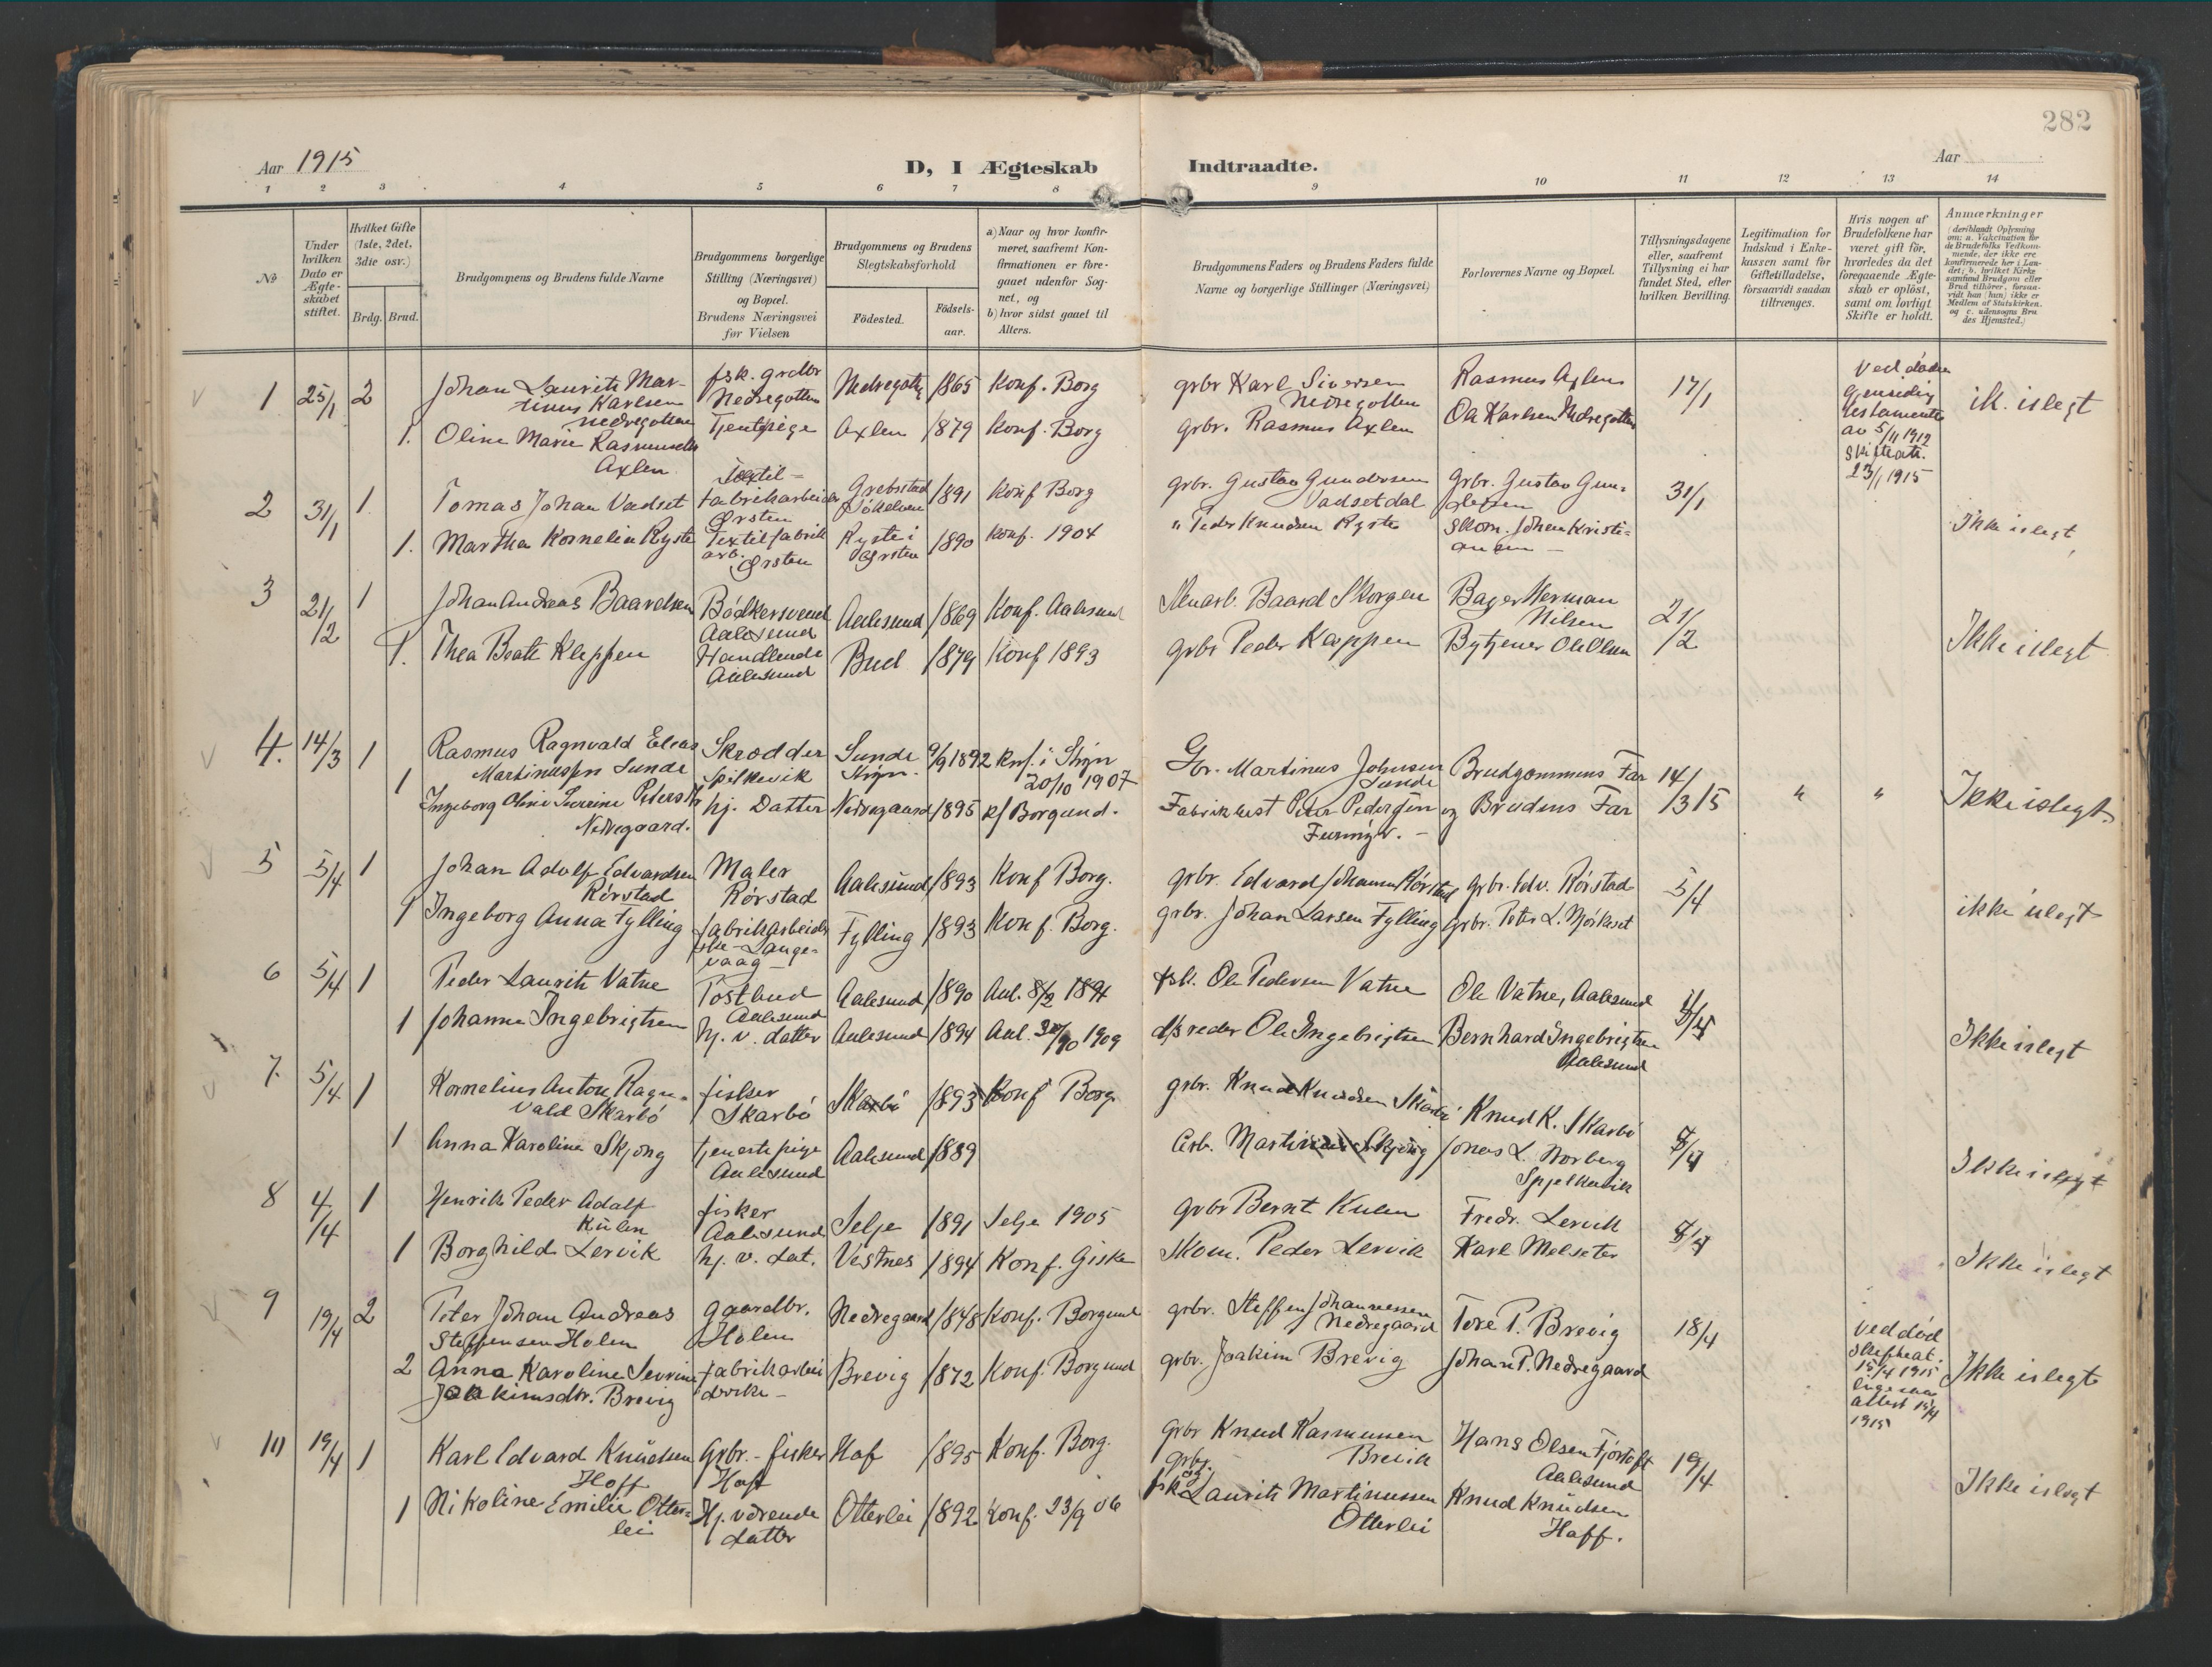 282
Aar 1915
D, I Ægteskab Indtraadte.
Aar
1 2 3 4 5 6 7 8 9 10 11 12 13 14
No
Under hvilken Dato er Ægte-skabet stiftet.
Hvilket Gifte (1ste, 2det, 3die osv.)
Brdg. Brud.
Brudgommens og Brudens fulde Navne
Brudgommens borgerlige Stilling (Næringsvei) og Bopæl. Brudens Næringsvei før Vielsen
Brudgommens og Brudens Slegtskabsforhold
Fødested. Fødsels-aar.
a) Naar og hvor konfir-meret, saafremt Kon-firmationen er fore-gaaet udenfor Sog-net, og b) hvor sidst gaaet til Alters.
Brudgommens Faders og Brudens Faders fulde Navne og borgerlige Stillinger (Næringsvei)
Forlovernes Navne og Bopæl.
Tillysningsdagene eller, saafremt Tillysning ei har fundet Sted, efter hvilken Bevilling.
Legitimation for Indskud i Enke-kassen samt for Giftetilladelse, forsaavidt saadan tiltrænges.
Hvis nogen af Brudefolkene har været gift før, hvorledes da det foregaaende Ægte-skab er opløst, samt om lovligt Skifte er holdt.
Anmærkninger (deriblandt Oplysning om: a. Vakcination for de Brudefolks Vedkom-mende, der ikke ere konfirmerede her i Lan-det; b. hvilket Kirke-samfund Brudgom eller Brud tilhører, forsaa-vidt han (hun) ikke er Medlem af Statskirken. og c. udensogns Bru-des Hjemsted.)
1 25/1 2 Johan Laurits Mar-tinus Karlsen Nedregotten fsk. grdbr Nedregotten 1865 Konf. Borg grbr Karl Siversen Nedregotten Rasmus Axlen 17/1 Ved døden Gjensidig testamente av 5/11 1912 Skifteatt. 23/1 1915 ik. islegt
1. Oline Marie Rasmusdtr Axlen Axlen 1879 Konf. Borg grbr. Rasmus Axlen Ole Karlsen Nedregotten
2 31/1 1. Tomas Johan Vadset Textil-fabrikarbeider Ørsten 1891 Konf Borg grbr. Gustav Gundersen Vadsetdal Grbr. Gustav Gun- 31/1 Ikke islegt
1. Martha Kornelia Ryste Textilfabrik arb. Ørsten Ryste i Ørsten 1890 Konf. 1904 " Peder Knudsen Ryste Skom. Johan Kristi-ansen –
3 21/2 1 Johan Andreas Baardsen Bødkersvend Aalesund Aalesund 1869 Konf. Aalesund Baard Skorgen Bager Herman Nilsen 21/2 Ikke islegt
1. Thea Beate Kleppen Handlende Aalesund Bud 1879 Konf 1893 grbr Peder Bytjener Ole Olsen
4. 14/3 1 Rasmus Ragnvald Elias Martinussen Sunde Skrædder Spilkevik Sunde 9/9 1892 20/10 1907 Gbr. Martinus Johnsen Sunde Brudgommens Far 14/3 15 " " Ikke islegt.
1 Ingeborg Oline Nedregaard. hj. Datter Nedregaard 1895 k/ Borgund. Peder Pedersen og Brudens Far
5 5/4 1 Johan Adolf Edvardsen Rørstad Maler Rørstad Aalesund 1893 Konf Borg. grbr. Edvard Johansen Rørstad Grbr. Edv. Rørstad 5/4 ikke islegt
1 Ingeborg Anna Fylling fabrikarbeider-ske Lange-vaag – Fylling 1893 Konf. Borg. grbr. Johan Larsen Fylling Grbr. Peter L.
6 5/4 1 Peder Laurits Vatne Postbud Aalesund Aalesund 1890 fsk. Ole Pedersen Vatne Ole Vatne, Aalesund Ikke islegt
1 Johanne Ingebrigtsen hj. v. datter Aalesund 1894 1909 Ole Ingebrigtsen Bernhard Ingebrigtsen Aalesund
7. 5/4 1 Kornelius Anton Ragn-vald Skarbö fisker Skarbö Skarbö 1893 Konf Borg grbr. Knud Knudsen Skarbö Knud K. Skarbö Ikke islegt
1 Anna Karoline Skjong tjenestepige Aalesund Aalesund 1889 Arb. Martinus Skjong Jonas L. Norberg Spjelkavik
8 4/4 1 Henrik Peder Adolf Kulen fisker Aalesund Selje 1891 Selje 1905 grbr Bernt Kulen Fredr. Lervik Ikke islegt
1 Borghild Lervik hj. v. dat. Vestnes 1894 Konf. Giske Skom. Peder Lervik Karl Melseter
9 19/4 2 Peter Johan Andreas Steffensen Holen Gaardbr. Holen Nedregaard 1848 Konf. Borgund grbr. Steffen Johannessen Nedregaard Tore P. Brevig 18/4 Ved død Skifteat. 15/4 1915 ligesaa attest 15/4 1915 Ikke islegt
2 Anna Karoline Sevrine Joakimsdtr. Brevig fabrikarbei derske – Brevig 1872 Konf. Borgund grbr. Joakim Brevig Johan P. Nedregaard
10 19/4 1 Karl Edvard Knudsen Hoff Grbr. – fisker Hoff Hof 1895 Konf. Borg. Grbr Knud Rasmussen Brevik Hans Olsen Fjørtoft Aalesund 19/4 Ikke islegt
1 Nikoline Emilie Otter-lei Hj. værende datter Otterlei 1892 Konf. 23/9 06 Grbr. og fsk. Laurits Martinussen Otterlei Knud Knudsen Hoff.